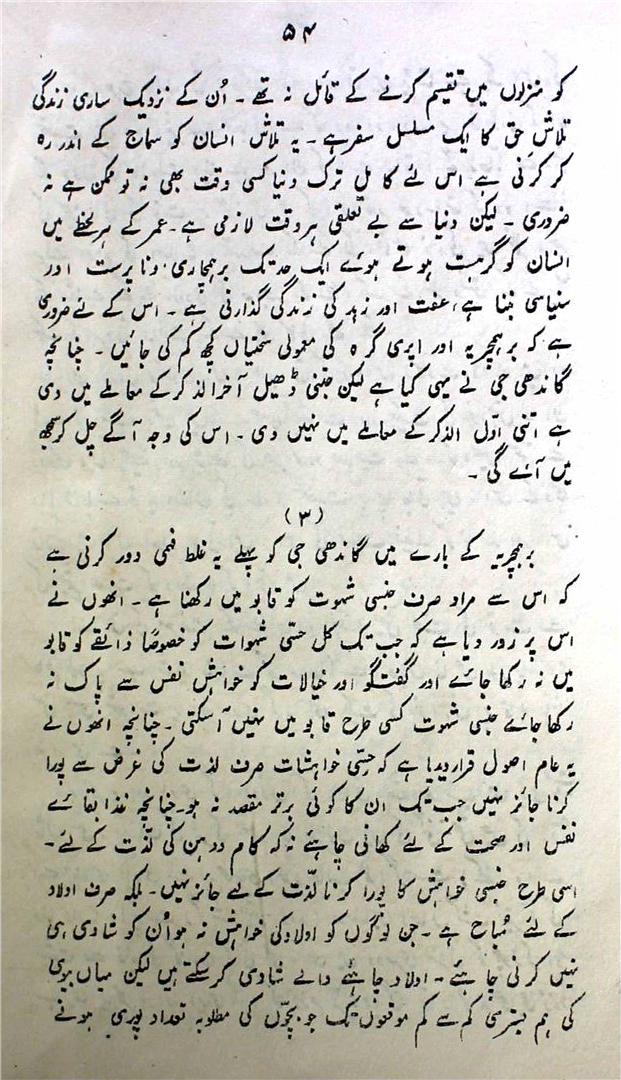 ۵۴
کو منزلوں میں تقسیم کرنے کے قائل نہ تھے ۔ اُن کے نزدیک ساری زندگی
تلاشِ حق کا ایک مسلسل سفر ہے ۔ یہ تلاش انسان کو سماج کے اندر رہ
کر کرنی ہے اس لئے کامل ترک دنیا کسی وقت بھی نہ تو ممکن ہے نہ
ضروری ۔ لیکن دنیا سے بے تعلقی ہر وقت لازمی ہے ۔ عمر کے ہر لحظے میں
انسان کو گرہست ہوتے ہوئے ایک حد تک برہمچاری، ونا پرست اور
سنیاسی بننا ہے، عفت اور زہد کی زندگی گذارنی ہے ۔ اس کے لئے ضروری
ہے کہ برہمچریہ اور اپری گرہ کی معمولی سختیاں کچھ کم کی جائیں ۔ چنانچہ
گاندھی جی نے یہی کیا ہے لیکن جتنی ڈھیل آخر الذکر کے معاملے میں دی
ہے اتنی اوّل الذکر کے معاملے میں نہیں دی ۔ اس کی وجہ آگے چل کر سمجھ
میں آئے گی ۔
(۳)
برہمچریہ کے بارے میں گاندھی جی کو پہلے یہ غلط فہمی دور کرنی ہے
کہ اس سے مراد صرف جنسی شہوت کو قابو میں رکھنا ہے ۔ انھوں نے
اس پر زور دیا ہے کہ جب تک کل حسّی شہوات کو خصوصًا ذائقے کو قابو
میں نہ رکھا جائے اور گفتگو اور خیالات کو خواہشِ نفس سے پاک نہ
رکھا جائے جنسی شہوت کسی طرح قابو میں نہیں آ سکتی ۔ چنانچہ انھوں نے
یہ عام اصول قرار دیا ہے کہ حسّی خواہشات صرف لذت کی غرض سے پورا
کرنا جائز نہیں جب تک ان کا کوئی برتر مقصد نہ ہو ۔ چنانچہ غذا بقائے
نفس اور صحت کے لئے کھانی چاہئے نہ کہ کام و دہن کی لذّت کے لئے ۔
اسی طرح جنسی خواہش کا پورا کرنا لذّت کے لیے جائز نہیں ۔ بلکہ صرف اولاد
کے لئے مُباح ہے ۔ جن لوگوں کو اولاد کی خواہش نہ ہو اُن کو شادی ہی
نہیں کرنی چاہئے ۔ اولاد چاہنے والے شادی کر سکتے ہیں لیکن میاں بیوی
کی ہم بستری کم سے کم موقعوں تک جو بچّوں کی مطلوبہ تعداد پوری ہونے